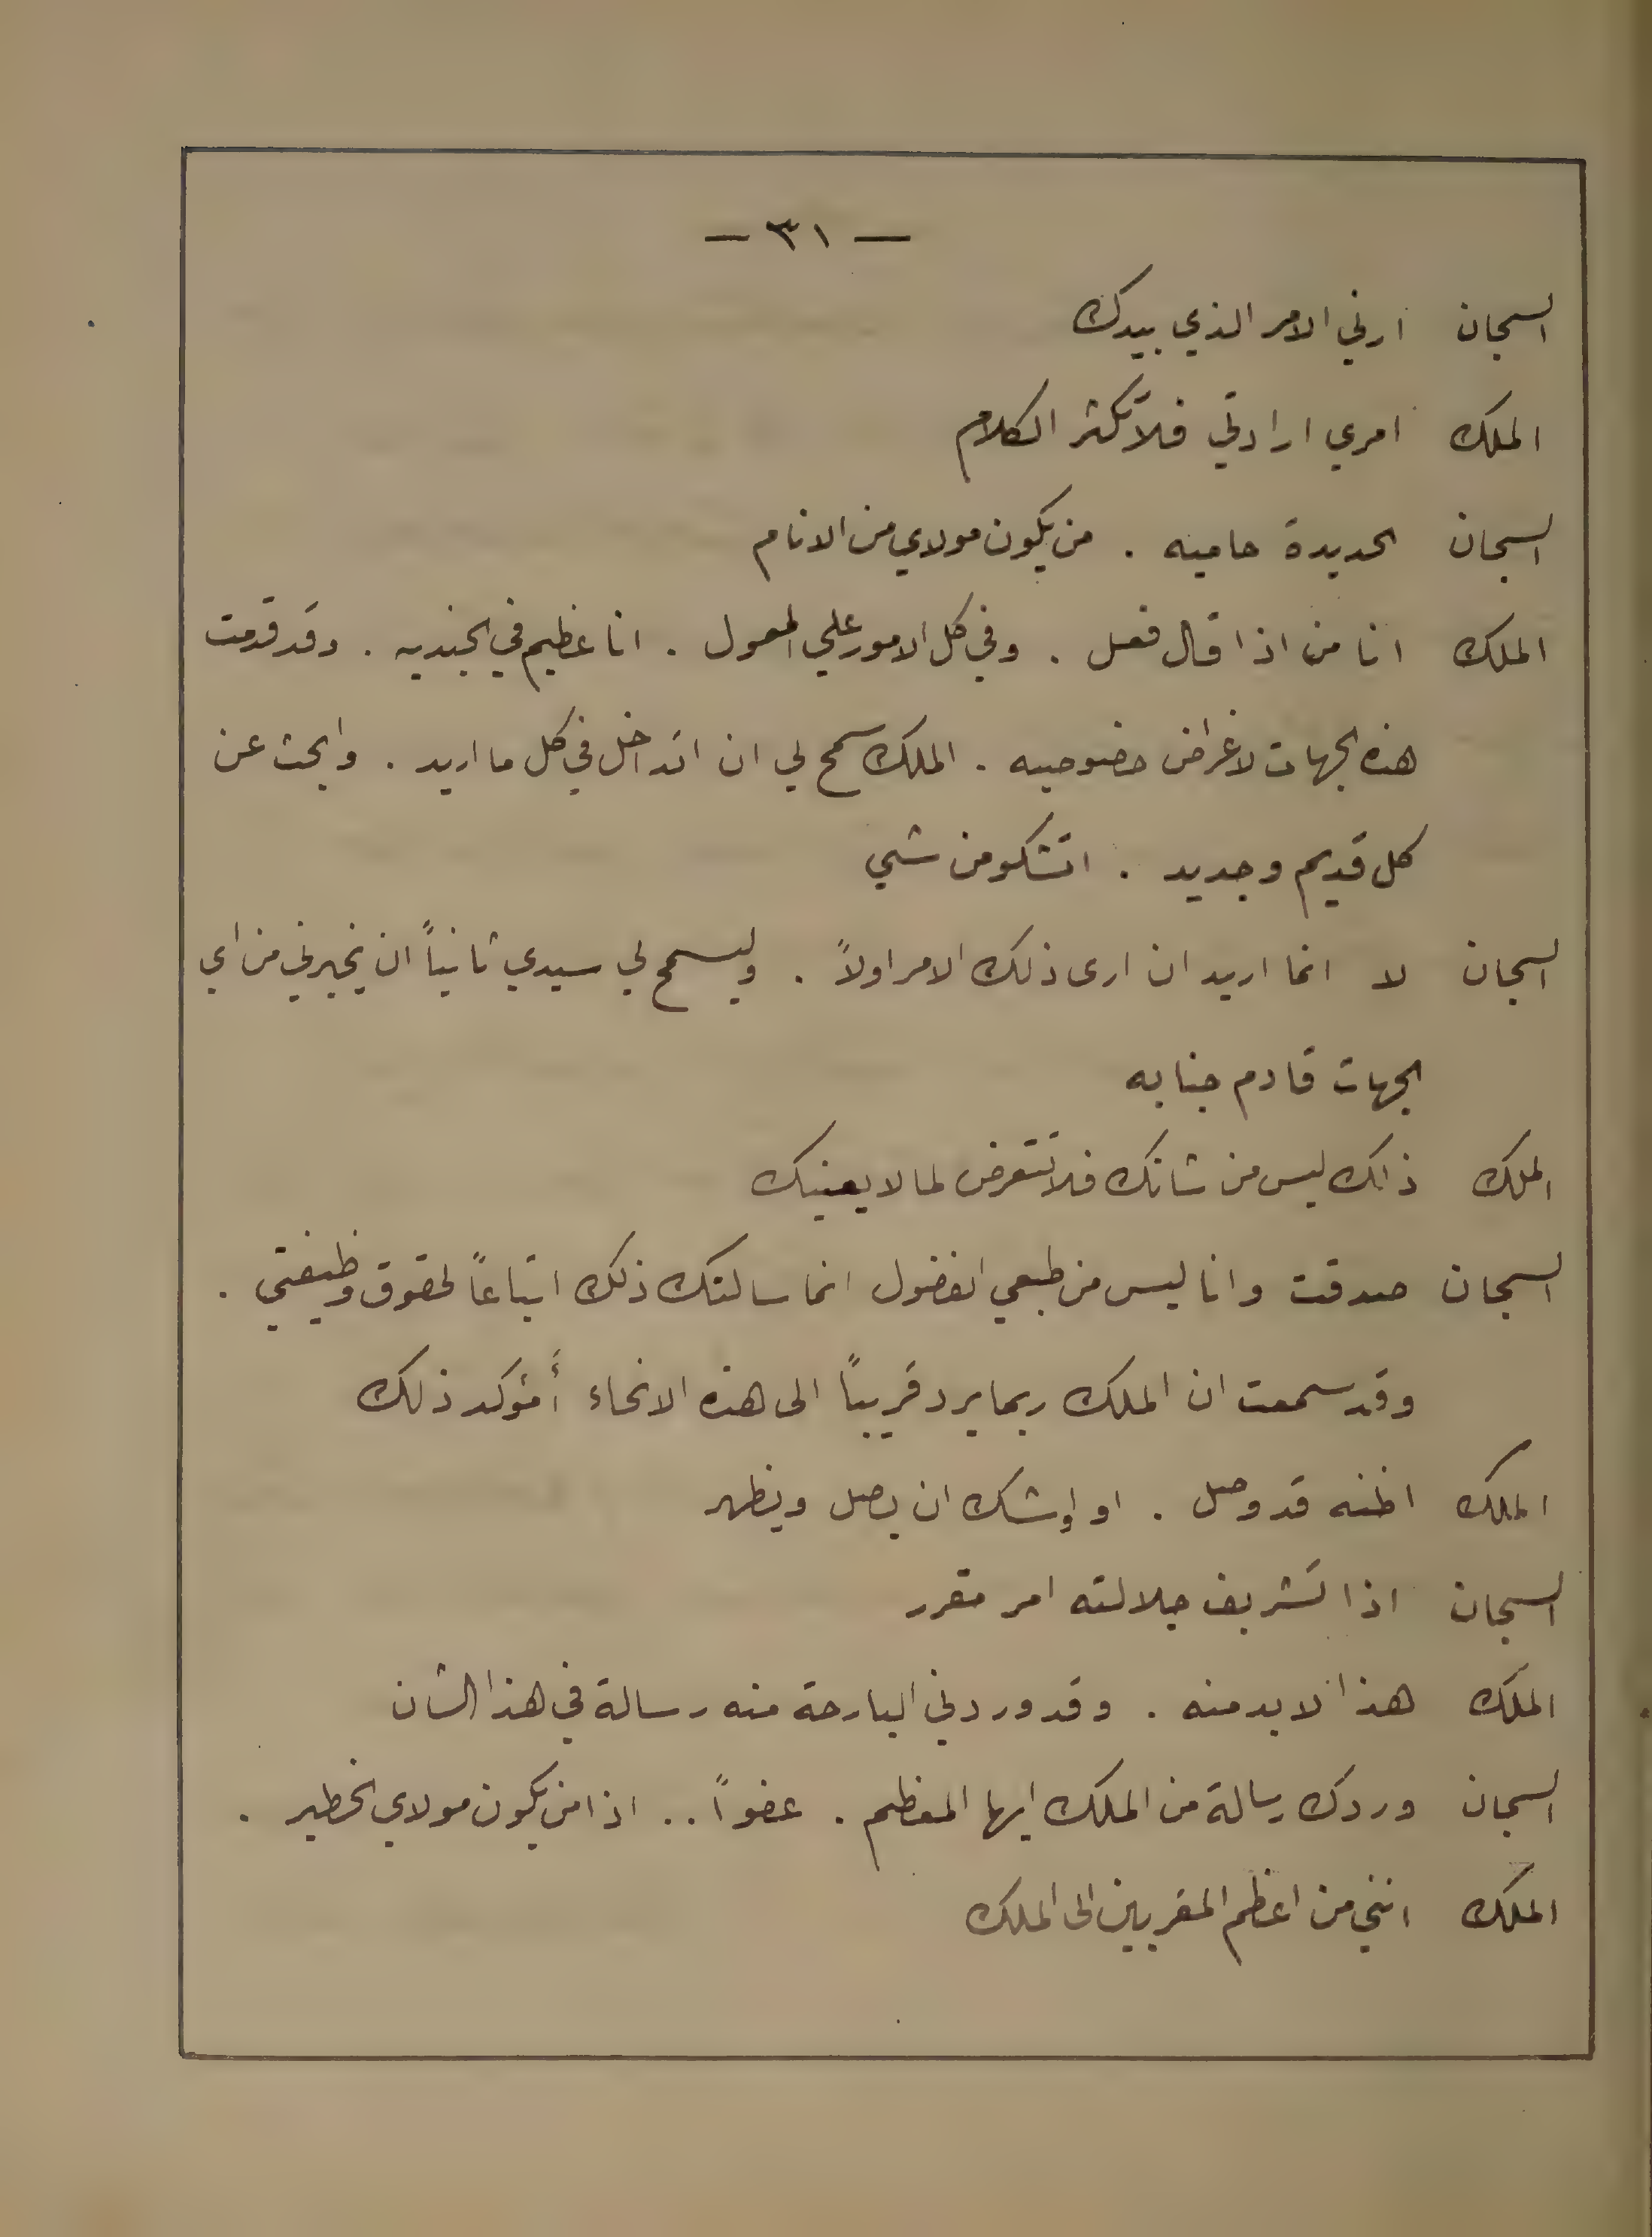 — ٣١ —
السجان ارني الامر الذي بيدك
الملك امري ارادتي فلا تكثر الكلام
السجان الحديدة حاميه . من يكون مولاي من الانام
الملك انا من اذا قال فعل . وفي كل الامور علي المعول . انا عظيم في الجنديه . وقد قدمت
هذه الجهات لاغراض خصوصيه . الملك سمح لي ان اتداخل في كل ما اريد . وابحث عن
كل قديم وجديد . اتشكو من شي
السجان لا انما اريد ان ارى ذلك الامر اولاً . وليسمح لي سيدي ثانياً ان يخبرني من اي
الجهات قادم جنابه
الملك ذلك ليس من شانك فلا تتعرض لما لا يعنيك
السجان صدقت وانا ليس من طبعي الفضول انما سالتك ذلك اتباعاً لحقوق وظيفتي .
وقد سمعت ان الملك ربما يرد قريباً الى هذه الانحاء أمؤكد ذلك
الملك اظنه قد وصل . او اوشك ان يصل ويظهر
السجان اذا تشريف جلالته امر مقرر
الملك هذا لا بد منه . وقد وردني البارحة منه رسالة في هذا الشان
السجان وردك رسالة من الملك ايها المعظم . عفواً .. اذا من يكون مولاي الخطير .
الملك انني من اعظم المقربين الى الملك